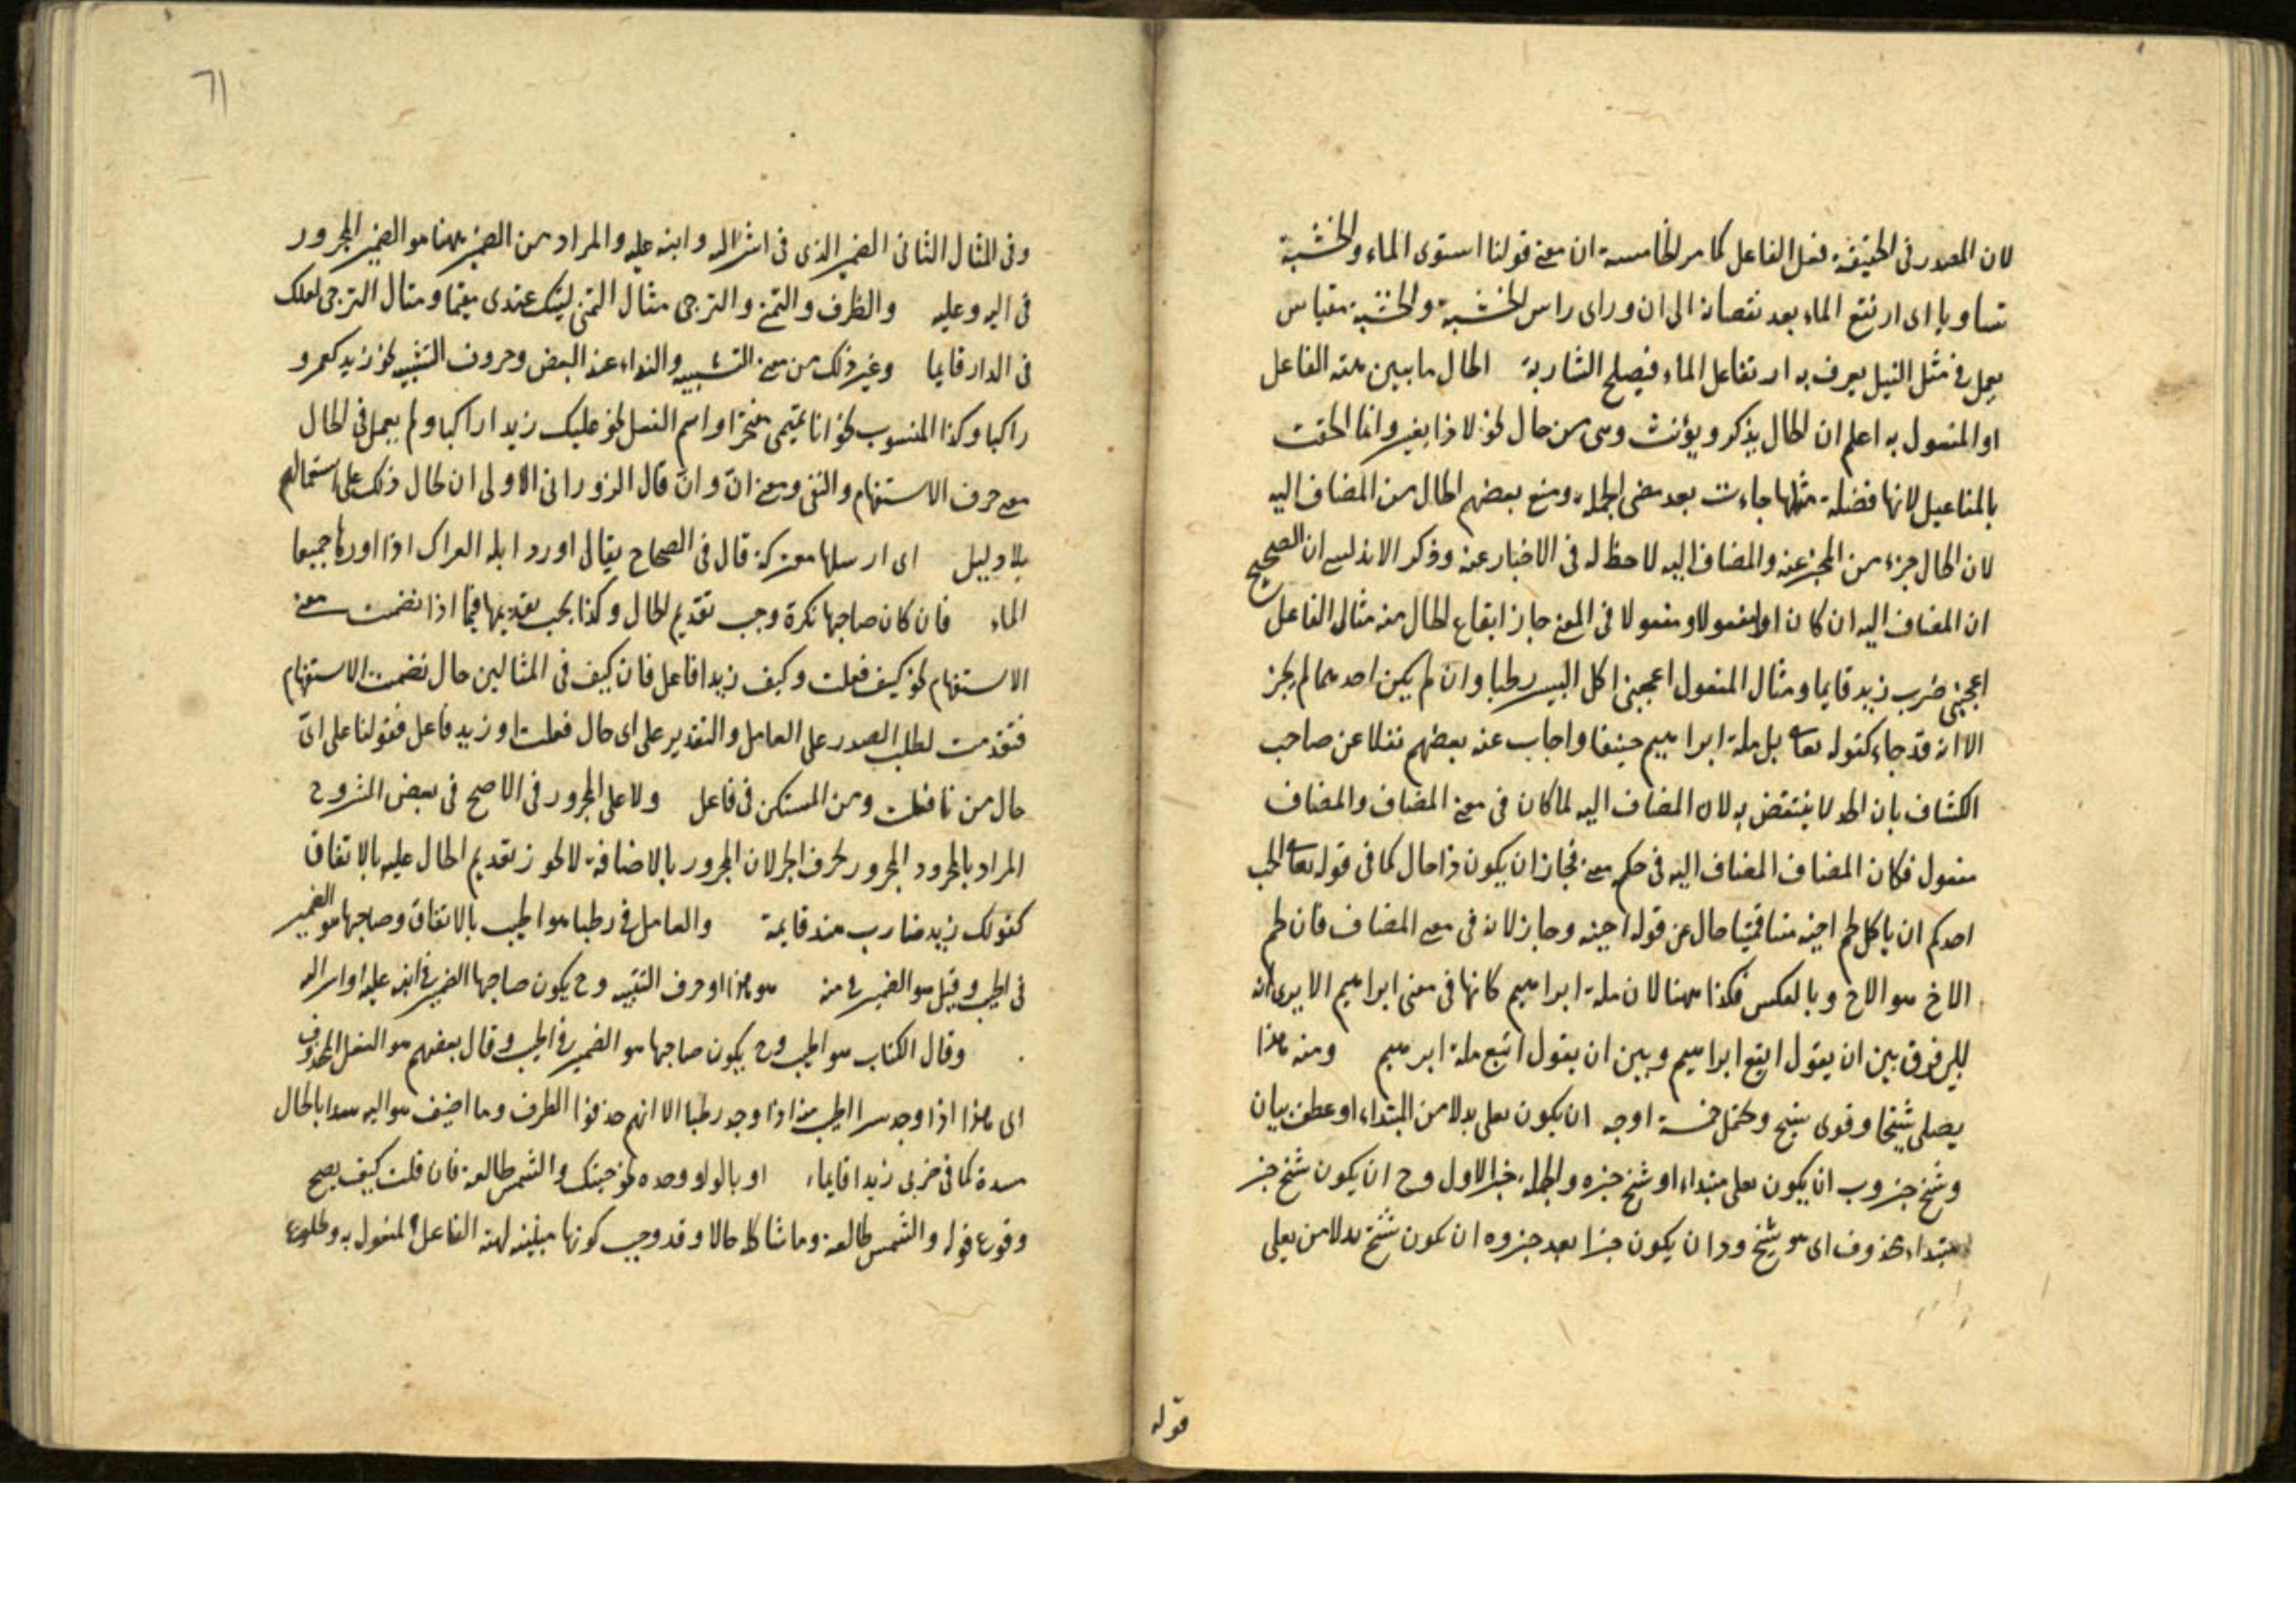 لان المصدر فى الحقيقة فعل الفاعل كما مر الخامسة ان معنى قولنا استوى الماء والخشبة
تساويا اى ارتفع الماء بعد نقصانه الى ان وراى راس الخشبة والخشبة مقياس
يعمل فى مثل النيل يعرف به ارتفاعل الماء فيصلح الشاربة الحال ما يبين هيئة الفاعل
او المفعول به اعلم ان الحال يذكر ويؤنث وهى من حال نحو لاذا يغير وانما الحقت
بالمفاعيل لانها فضلة مثلها جاءت بعد مضى الجملة ومنع بعضهم الحال من المضاف اليه
لان الحال جزء من المخبر عنه والمضاف اليه لا حظ له فى الاخبار عنه وذكر الاندلسى ان الصحيح
ان المضاف اليه ان كان او مفعولا فى المعنى جاز ايقاع الحال منه مثال الفاعل
اعجبنى ضرب زيد قايما ومثال المفعول اعجبنى اكل البسر رطبا وان لم يكن احدهما لم يجز
الا انه قد جاء كقوله تعالى بل ملة ابراهيم حنيفا واجاب عنه بعضهم نقلا عن صاحب
الكشاف بان الحد لا ينتقض به لان المضاف اليه لما كان فى معنى المضاف والمضاف
مفعول فكان المضاف المضاف اليه فى حكم معنى فجاز ان يكون ذا حال كما فى قوله تعالى ايحب
احدكم ان ياكل لحم اخيه ميتا فميتا حال عن قوله اخيه وجاز لانه فى معنى المضاف فان لحم
الاخ هو الاخ وبالعكس فكذا ههنا لان ملة ابراهيم كانها فى معنى ابراهيم الا يرى انه
ليس فرق بين ان يقول اتبع ابراهيم وبين ان يقول اتبع ملة ابرهيم ومنه هذا
بعلى شيخا وقوى شيخ ويحتمل خمسة اوجه ان يكون بعلى بدلا من المبتداء او عطف بيان
وشيخ خبر وب ان يكون بعلى مبتداء او شيخ خبره والجملة خبر الاول وح ان يكون شيخ خبر
مبتداء محذوف اى هو شيخ ود ان يكون خبرا بعد خبر وه ان يكون شيخ بدلا من بعلى
قوله
٦١
وفى المثال الثانى الضمير الذى فى اشر اليه وابنه عليه والمراد من الضمير ههنا هو الضمير المجرور
فى اليه وعليه والظرف والتمنى والترجى مثال التمنى ليتك عندى مقيما ومثال الترجى لعلك
فى الدار قايما وغير ذلك من معنى التشبيه والنداء عند البعض وحروف التشبيه نحو زيد كعمرو
راكبا وكذا المنسوب نحو انا تميمى مفتخرا واسم الفعل نحو عليك زيدا راكبا ولم يعمل فى الحال
معنى حرف الاستفهام والنفى ومعنى انّ وانّ قال الزورانى الاولى ان يحال ذلك على استعمالهم
بلا دليل اى ارسلها معتركة قال فى الصحاح يقال اورد ابله العراك اذا اوردها جميعا
الماء فان كان صاحبها نكرة وجب تقديم الحال وكذا يجب تقديمها فيما اذا تضمنت معنى
الاستفهام نحو كيف فعلت وكيف زيد افاعل فان كيف فى المثالين حال تضمنت الاستفهام
فتقدمت لطلب الصدر على العامل والتقدير على اى حال فعلت او زيد فاعل فقولنا على اىّ
حال من تا فعلت ومن المستكن فى فاعل ولا على المجرور فى الاصح فى بعض الشروح
المراد بالمجرور المجرور بحرف الجر لان المجرور بالاضافة لا يجوز تقديم الحال عليه بالاتفاق
كقولك زيد ضارب هند قايمة والعامل فى رطبا هو اطيب بالاتفاق وصاحبها هو الضمير
فى اطيب وقيل هو الضمير فى منه هو هذا او حرف التنبيه وح يكون صاحبها الضمير فى ابنه عليه او اشر اليه
وقال الكتاب هو اطيب وح يكون صاحبها هو الضمير فى اطيب وقال بعضهم هو الفعل المحذوف
اى هذا اذا وجد بسرا اطيب منه اذا وجد رطبا الا انهم حذفوا الظرف وما اضيف هو اليه سدا بالحال
مسده كما فى ضربى زيدا قايما، او بالواو وحده نحو جئتك والشمس طالعة فان قلت كيف يصح
وقوع قوله والشمس طالعة وما شاكله حالا وقد وجب كونها مبينة لهيئة الفاعل او المفعول به وطلوع